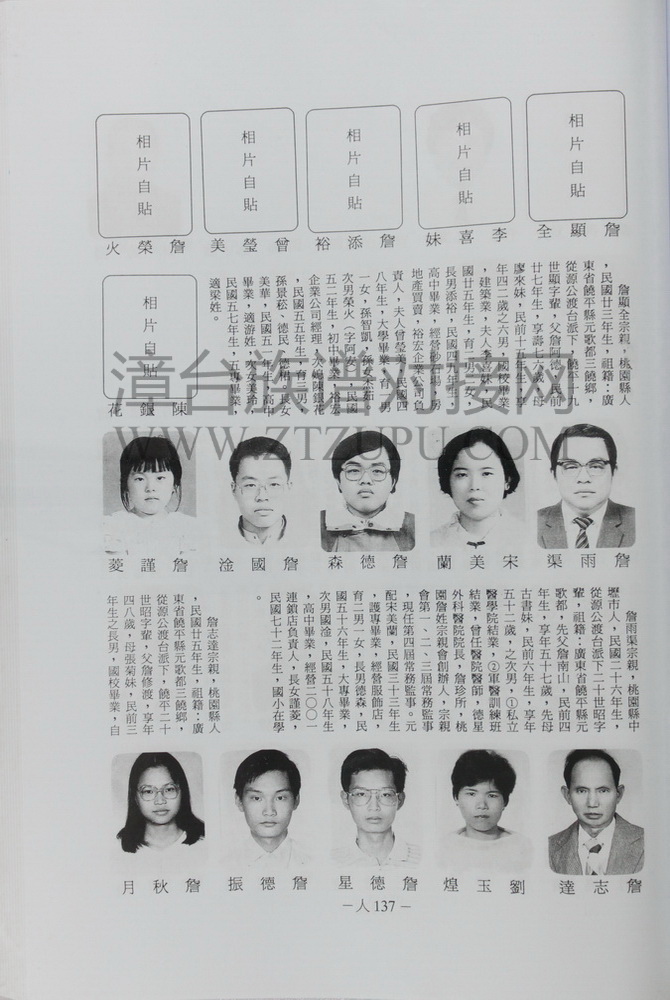 相片自貼
相片自貼
相片自貼
相片自貼
相片自貼
詹顯全
李喜妹
詹添裕
曾瑩美
詹榮火
詹顯全宗親,桃園縣人
,民國廿三年生,祖籍:廣
東省饒平縣元歌都三饒鄉,
從源公渡台派下,饒平十九
世顯字輩,父詹阿德,民前
廿七年生,享壽七十歲,母
廖來妹,民前十五年生,享
年四二歲之六男,國校畢業
,建築業,夫人李喜妹,民
國廿五年生,育二男二女,
長男添裕,民國四九年生,
高中畢業,經營砂石場,房
地產買賣,裕宏企業公司負
責人,夫人曾瑩美,民國四
八年生,大學畢業,育一男
一女,孫智凱,孫女采茹,
次男榮火(字阿安),民國
五二年生,初中畢業,裕宏
企業公司經理,次媳陳銀花
,民國五五年生,育二男,
孫景菘、德民、德相,長女
美華,民國五一年生,高中
畢業,適游姓,次女美玲,
民國五七年生,五專畢業,
適梁姓。
相片自貼
陳銀花
漳台族谱对接网
WWW.ZTZUPU.COM
詹雨渠
宋美蘭
詹德森
詹國淦
詹謹菱
詹雨渠宗親,桃園縣中
壢市人,民國二十六年生,
從源公渡台派下二十世昭字
輩,祖籍:廣東省饒平縣元
歌都,先父詹南山,民前四
年生,享年五十七歲,先母
古書妹,民前六年生,享年
五十二歲,之次男,①私立
醫學院結業,②軍醫訓練班
結業,曾任醫院醫師,德星
外科醫院院長,詹珍所,桃
園詹姓宗親會創辦人,宗親
會第一、二、三屆常務監事
,現任第四屆常務監事。元
配宋美蘭,民國三十三年生
,護專畢業,經營服飾店,
育二男一女,長男德森,民
國五十六年生,大專畢業,
次男國淦,民國五十八年生
,高中畢業,經營二○○一
連鎖店負責人,長女謹菱,
民國七十二年生,國小在學
。
詹志達宗親,桃園縣人
,民國廿五年生,祖籍:廣
東省饒平縣元歌都三饒鄉,
從源公渡台派下,饒平二十
世昭字輩,父詹修渡,享年
四八歲,母張菊妹,民前三
年生之長男,國校畢業,自
詹志達
劉玉煌
詹德星
詹德振
詹秋月
－人137－